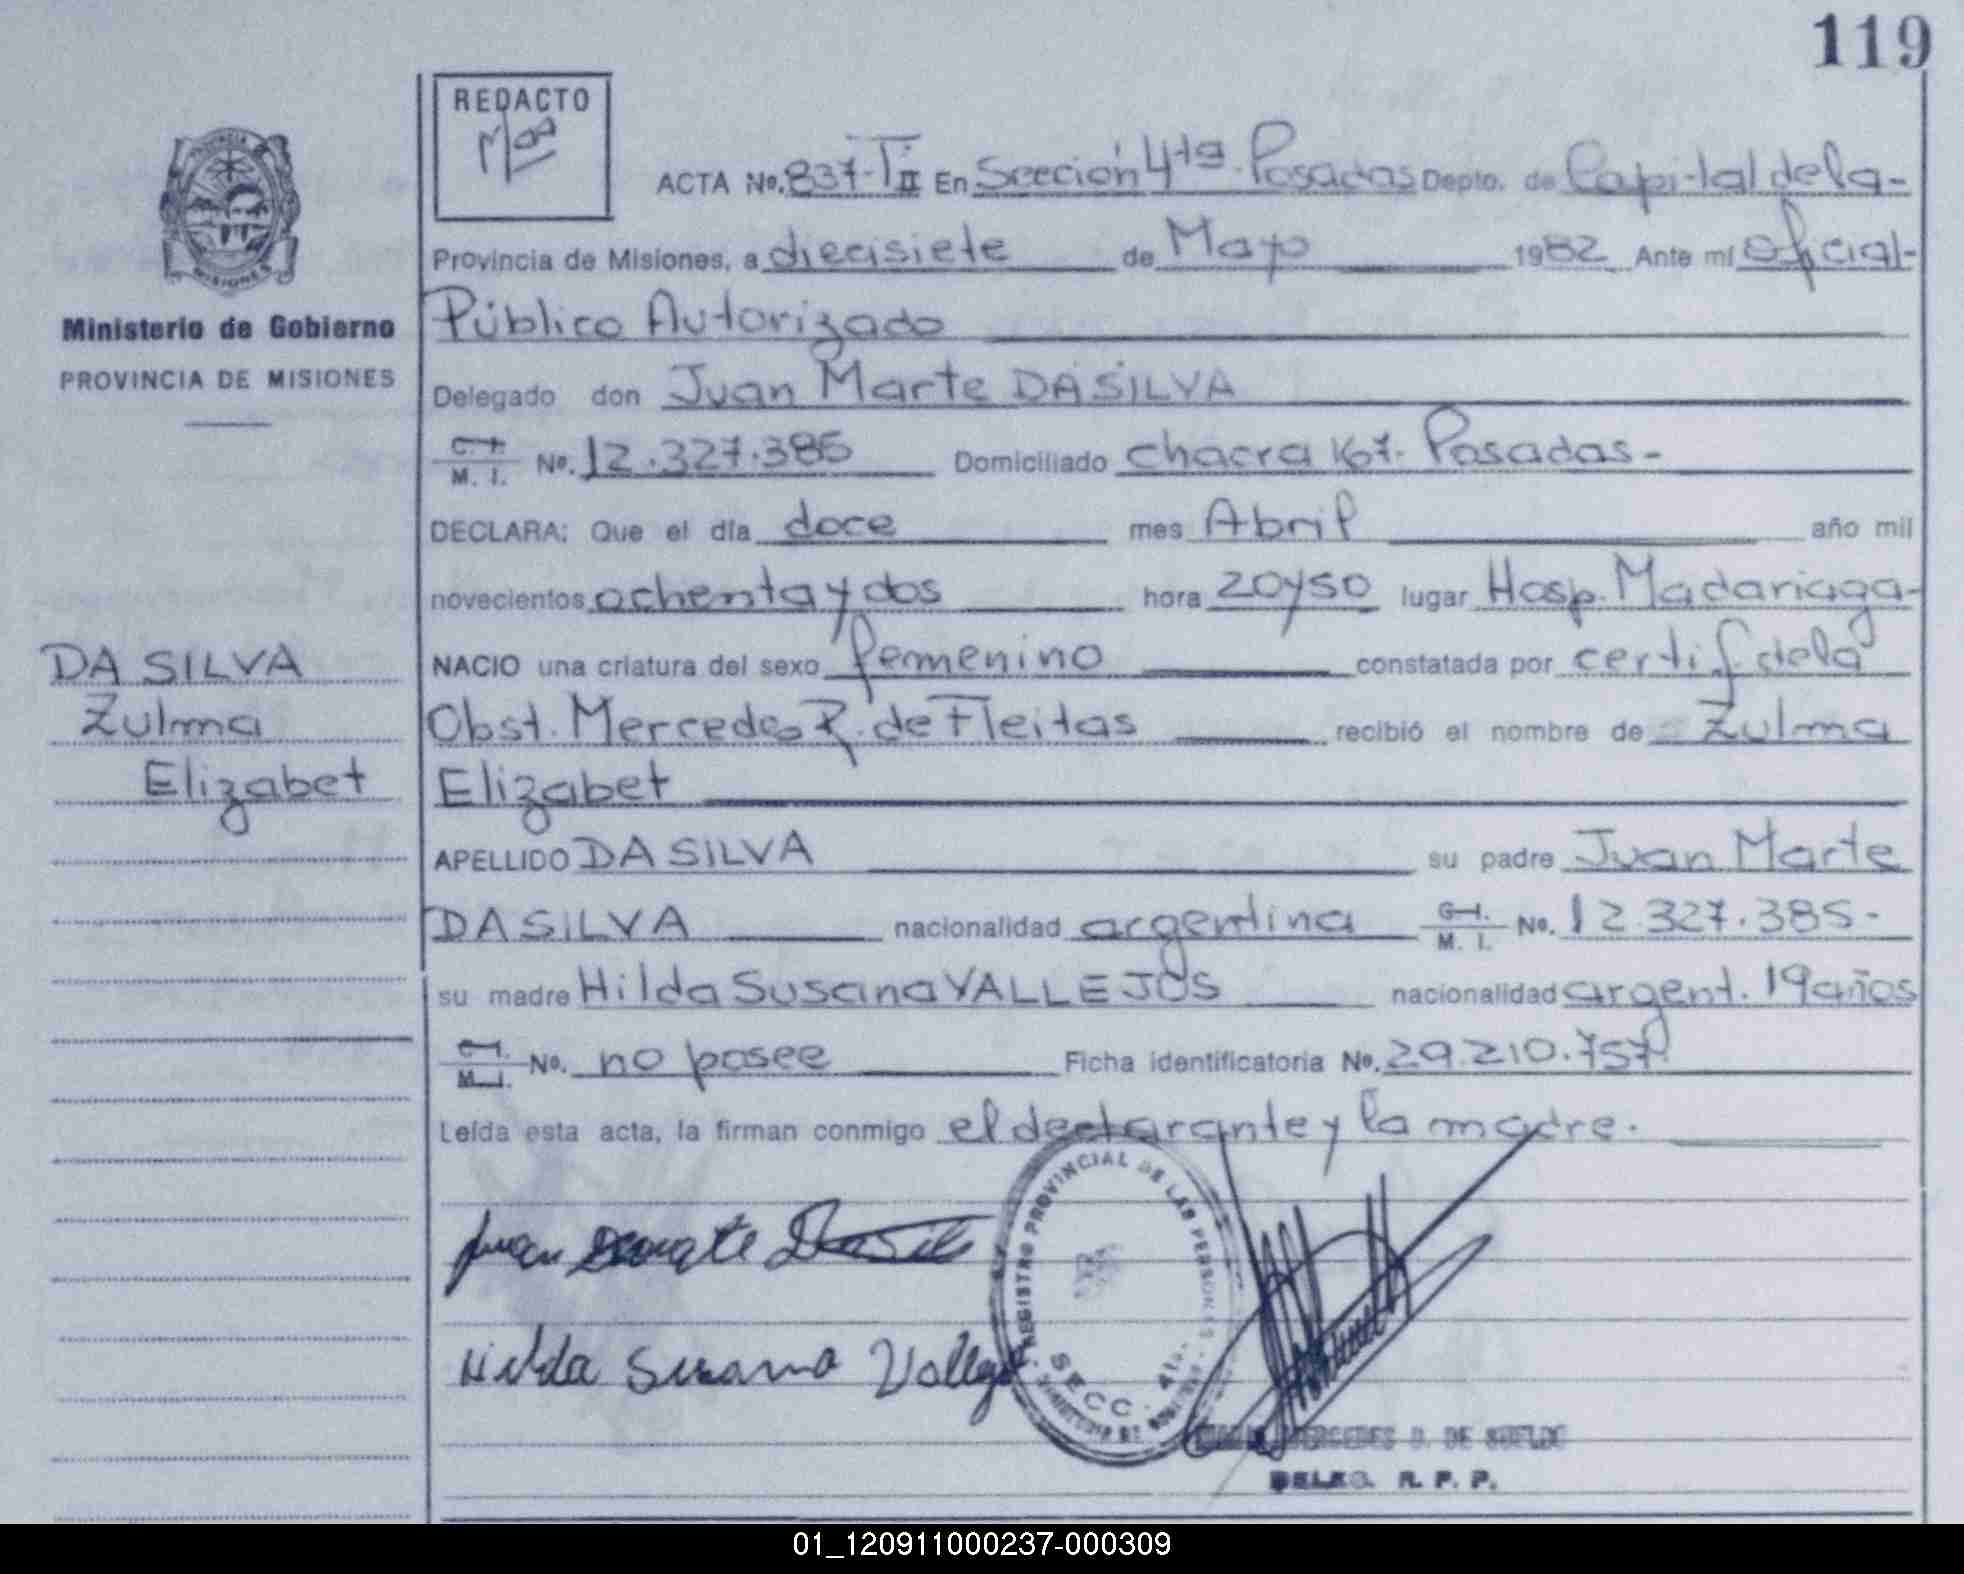 119
REDACTO
ACTA No. 837-T II En Sección 4ta. Posadas Depto. de Capital de la-
Provincia de Misiones, a diecisiete de Mayo 1982 Ante mí Oficial-
Público Autorizado
Delegado don Juan Marte DA SILVA
C. I. M. I. No. 12.327.385 Domiciliado chacra 167. Posadas-
DECLARA: Que el día doce mes Abril año mil
novecientos ochenta y dos hora 20y50 lugar Hosp. Madariaga-
NACIO una criatura del sexo femenino constatada por certif. de la
Obst. Mercedes R. de Fleitas recibió el nombre de Zulma
Elizabet
APELLIDO DA SILVA su padre Juan Marte
DA SILVA nacionalidad argentina C. I. M. I. No. 12.327.385-
su madre Hilda Susana VALLEJOS nacionalidad argent. 19 años
C. I. M. I. No. no posee Ficha identificatoria No. 29.210.757
Leída esta acta, la firman conmigo el declarante y la madre.
PROVINCIA DE
MISIONES
Ministerio de Gobierno
PROVINCIA DE MISIONES
DA SILVA
Zulma
Elizabet
Juan Marte DaSil
Hilda Susana Vallejo
REGISTRO PROVINCIAL DE LAS PERSONAS
SECC. 4ta.
MERCEDES D. DE SUELDO
DELEG. R. P. P.
01_120911000237-000309